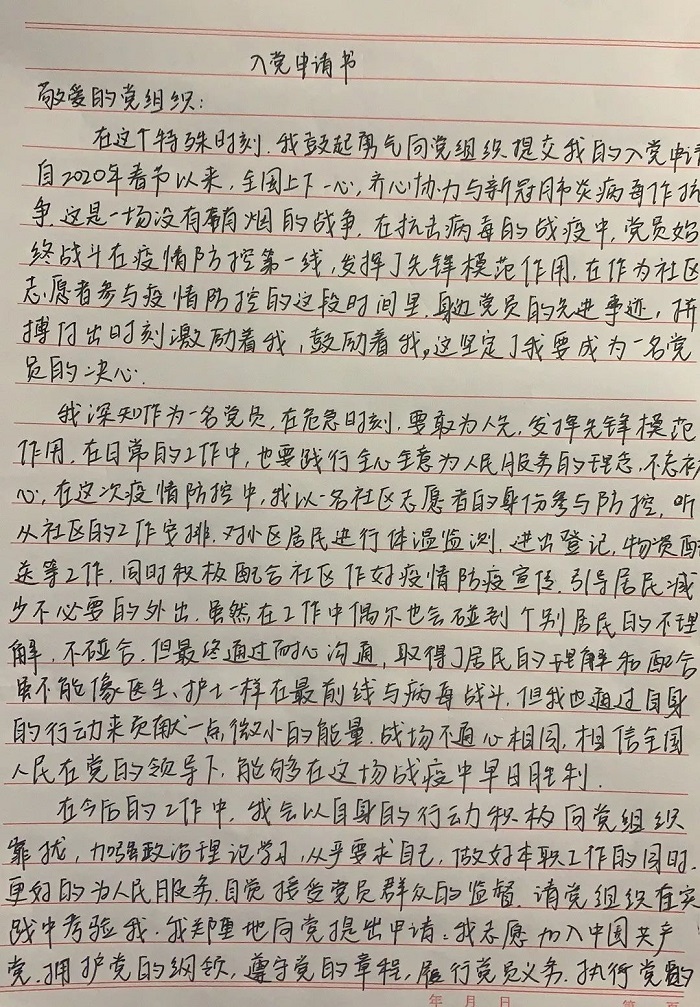 入党申请书
敬爱的党组织:
在这个特殊时刻,我鼓起勇气向党组织提交我的入党申请
自2020年春节以来,全国上下一心,齐心协力与新冠肺炎病毒作抗
争,这是一场没有硝烟的战争,在抗击病毒的战疫中,党员始
终战斗在疫情防控第一线,发挥了先锋模范作用,在作为社区
志愿者参与疫情防控的这段时间里,身边党员的先进事迹,拼
搏付出时刻激励着我,鼓励着我,这坚定了我要成为一名党
员的决心.
我深知作为一名党员,在危急时刻,要敢为人先,发挥先锋模范
作用,在日常的工作中,也要践行全心全意为人民服务的理念,不忘初
心,在这次疫情防控中,我以一名社区志愿者的身份参与防控,听
从社区的工作安排,对小区居民进行体温监测,进出登记,物资配
送等工作,同时积极配合社区作好疫情防疫宣传,引导居民减
少不必要的外出,虽然在工作中偶尔也会碰到个别居民的不理
解,不配合,但最终通过耐心沟通,取得了居民的理解和配合
虽不能像医生、护士一样在最前线与病毒战斗,但我也通过自身
的行动来贡献一点微小的能量,战场不通心相同,相信全国
人民在党的领导下,能够在这场战疫中早日胜利.
在今后的工作中,我会以自身的行动积极向党组织
靠拢,加强政治理论学习,从严要求自己,做好本职工作的同时,
更好的为人民服务,自觉接受党员群众的监督,请党组织在实
践中考验我.我郑重地向党提出申请:我志愿加入中国共产
党,拥护党的纲领,遵守党的章程,履行党员义务,执行党的
年 月 日 第 页